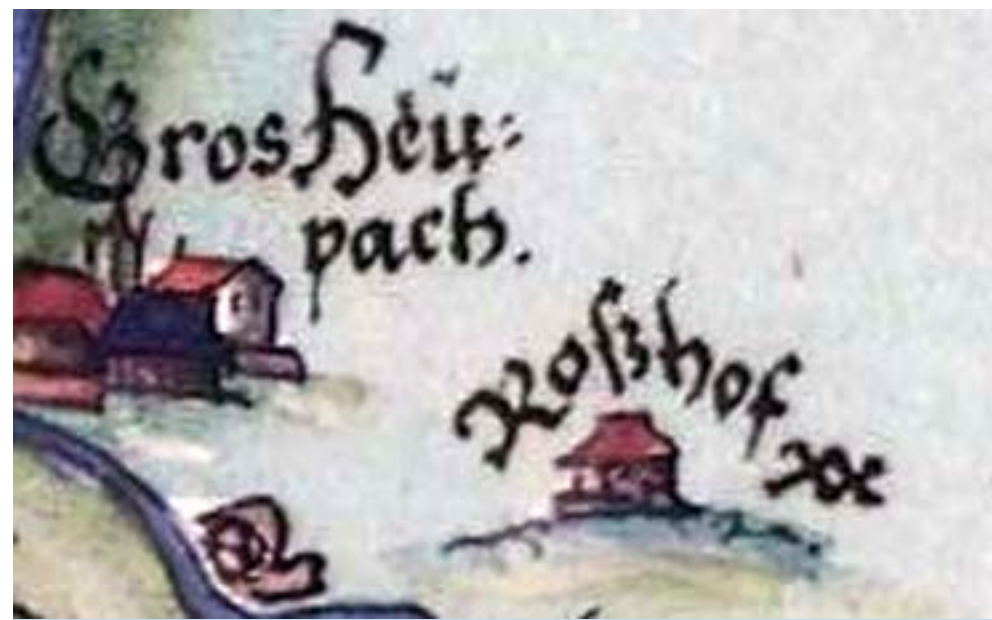 GrosHeu:
pach.
Roßhof